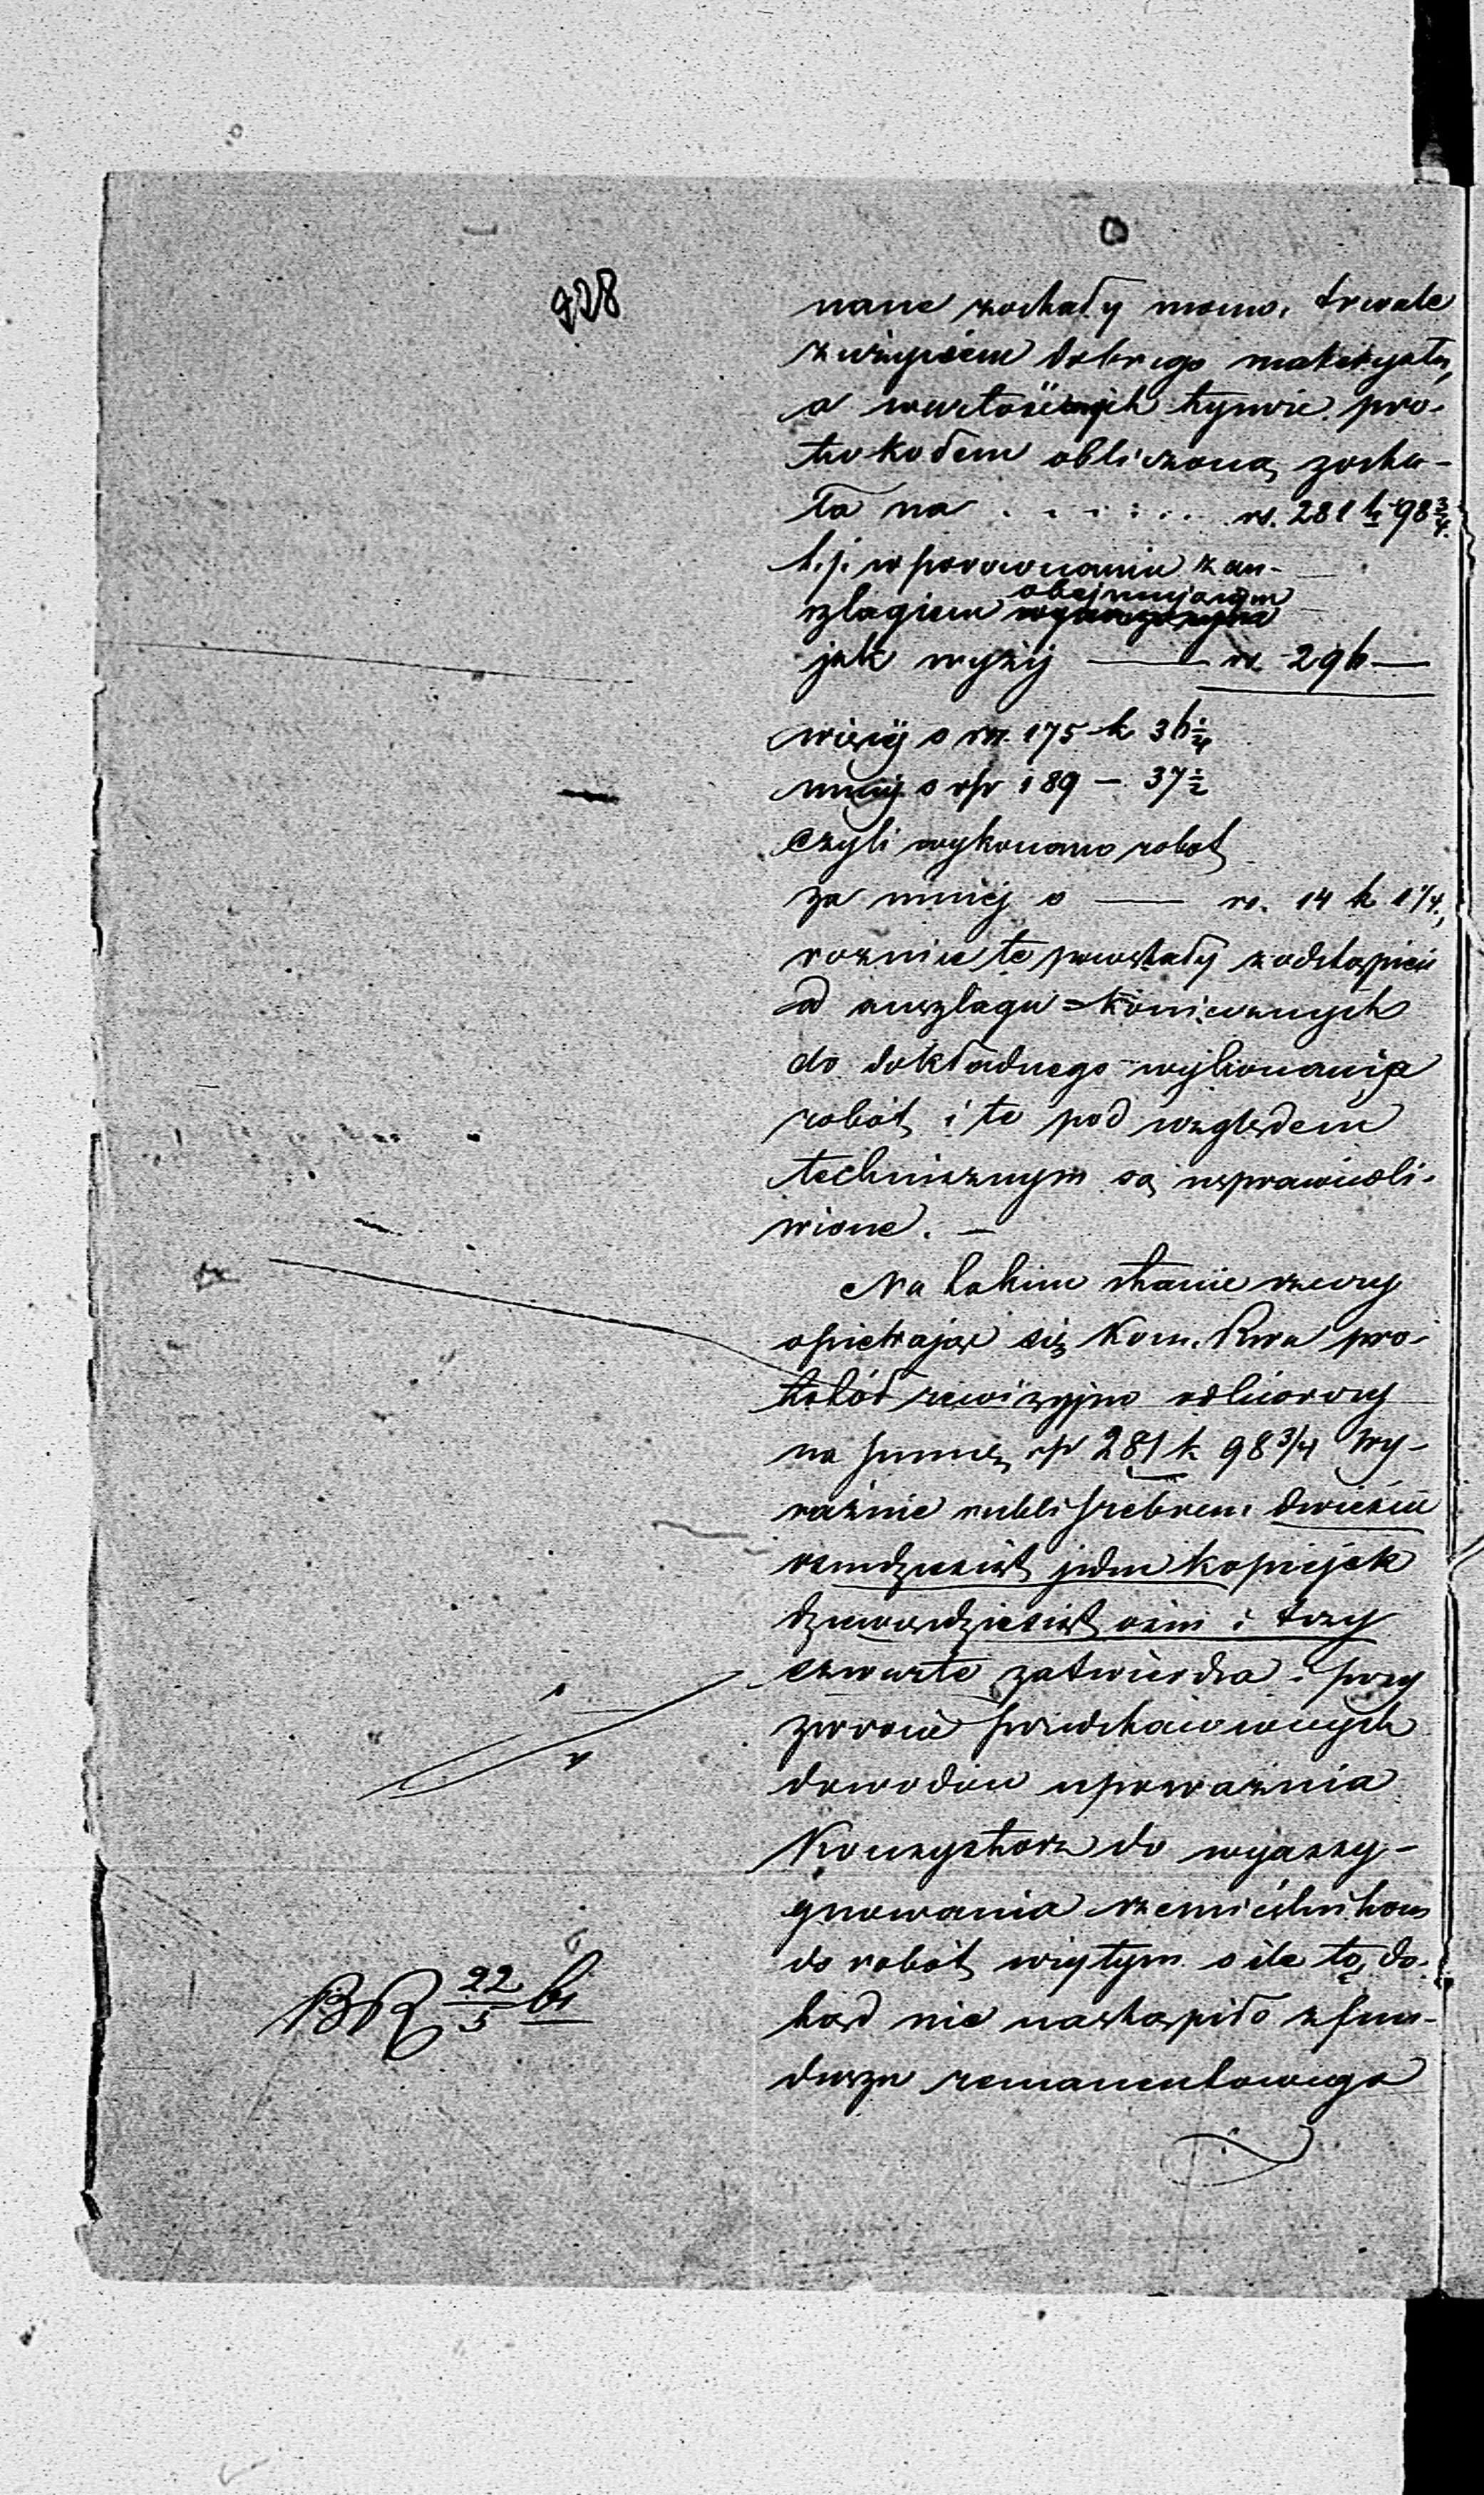 928
nane zostały mocno, trwale
z użyciem dobrego materyału,
a wartość ich tymże pro-
tokołem obliczoną zosta-
ła na . . . . . . . rs. 281 k 98 3/4.
t.j. w porównaniu z an-
szlagiem obejmującym
jak wyżej —— rs. 296 —
więcej o rsr. 175 k 36 1/4
mniej o rsr 189 — 37 1/2
czyli wykonano robot
za mniej o —— rs. 14 k 1 1/4,
roznice te powstały z odstąpień
od anszlagu koniecznych
do dokładnego wykonania
robót, i te pod względem
technicznym są usprawiedli-
wione. —
Na takim stanie rzeczy
opierając się Kom. Rwa pro-
tokół rewizyjno odbiorczy
na summę rsr 281 k 98 3/4 wy-
raźnie rubli srebrem dwieście
ośmdziesiąt jeden kopiejek
dziewięćdziesiąt ośm i trzy
czwarte zatwierdza i przy
zwrocie przedstawionych
dowodów upoważnia
Konsystorz do wyassy-
gnowania rzemieślnikom
do robót wziętym o ile to do-
tąd nie nastąpiło z fun-
duszu remanentowego
BR 22/5 61